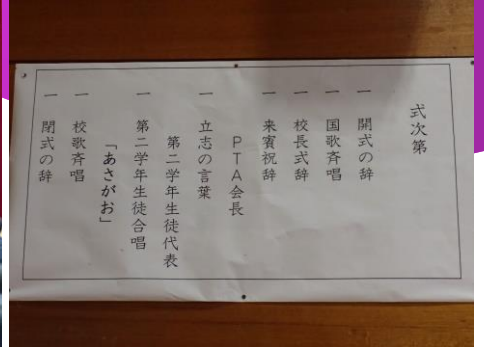 式次第
一 開式の辞
一 国歌斉唱
一 校長式辞
一 来賓祝辞
PTA会長
一 立志の言葉
第二学年生徒代表
一 第二学年生徒合唱
「あさがお」
一 校歌斉唱
一 閉式の辞